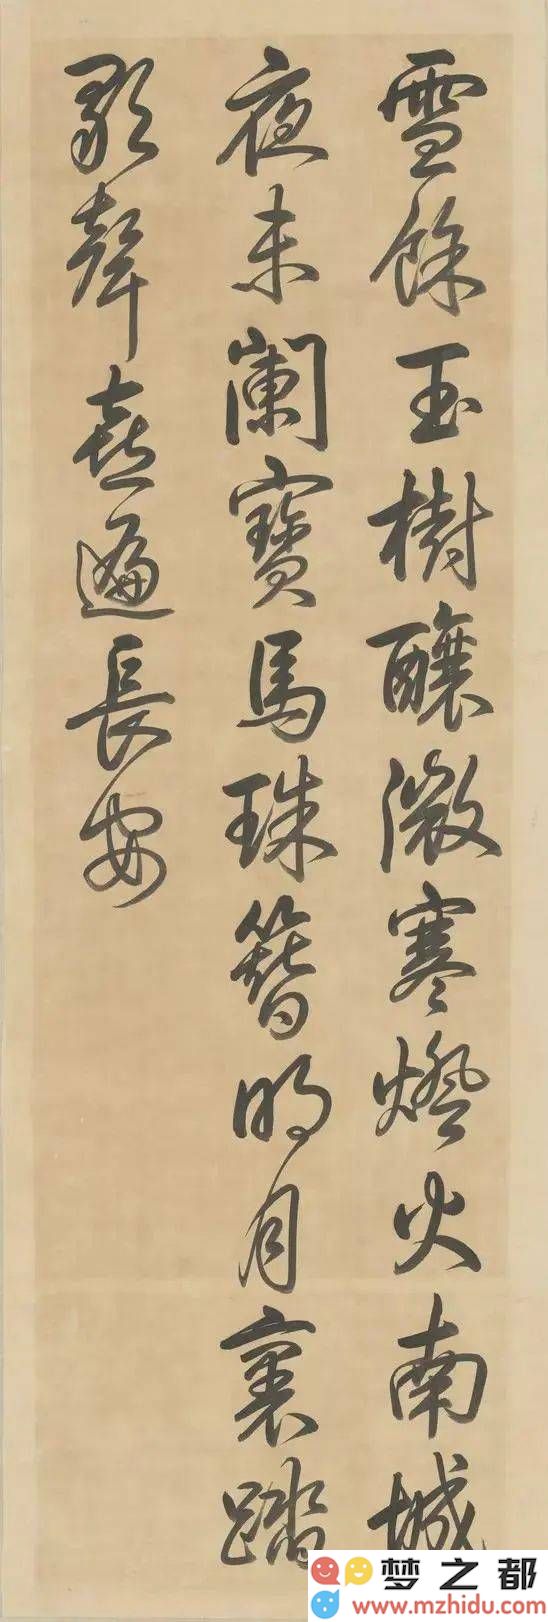 雪餘玉樹釀微寒燈火南城
夜未闌寶馬珠簪明月裏踏
歌聲喜遍長安
梦之都
www.mzhidu.com